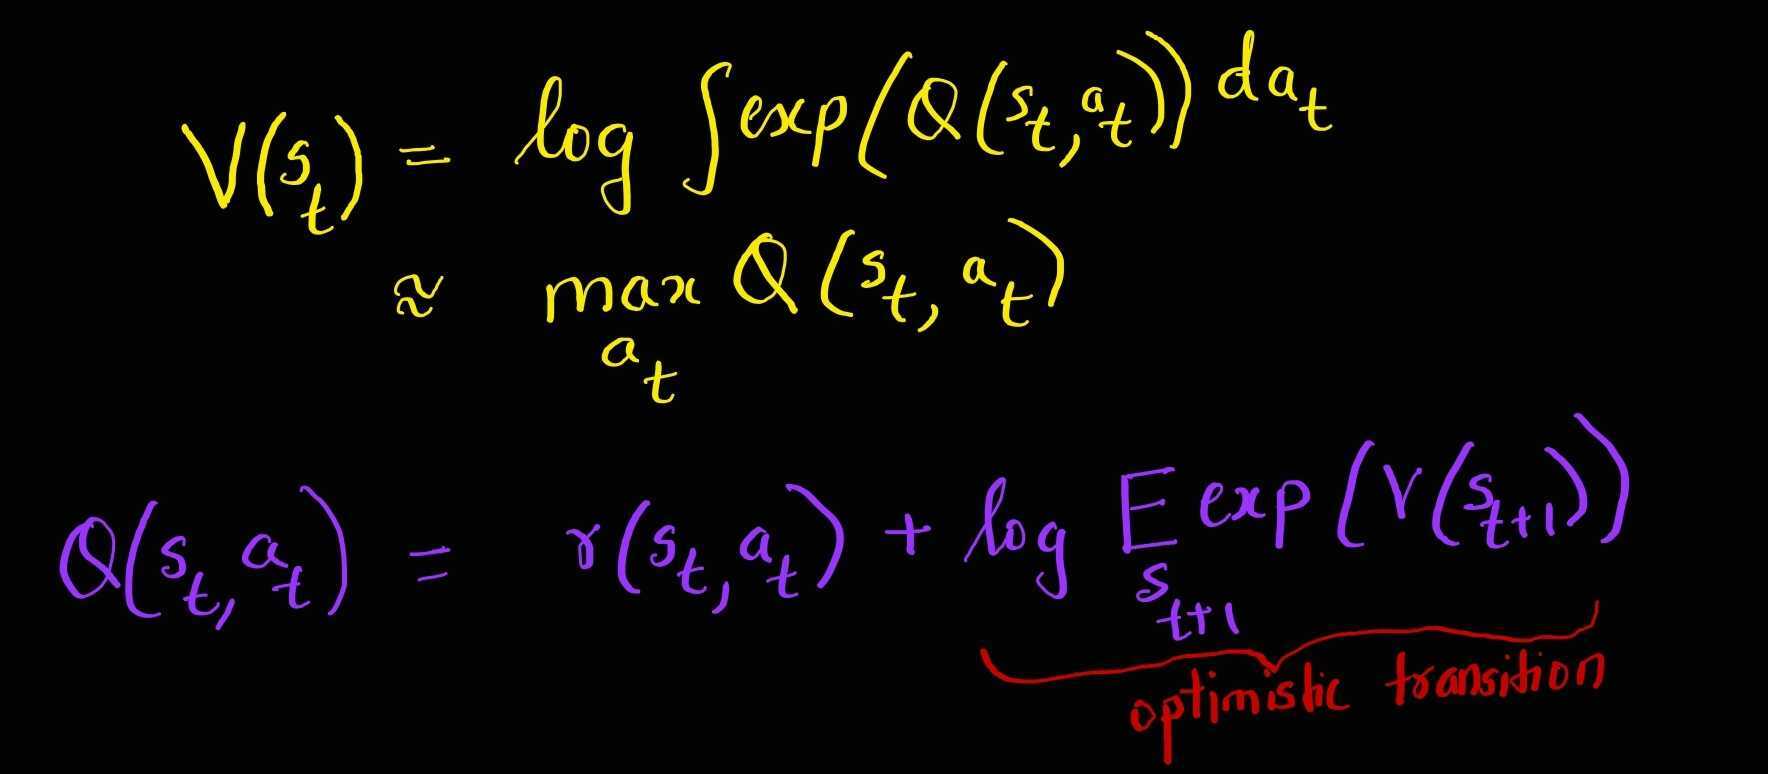 V(s_t) = log ∫exp(Q(s_t, a_t)) da_t
≈ max_{a_t} Q(s_t, a_t)
Q(s_t, a_t) = r(s_t, a_t) + log E_{s_{t+1}} exp(V(s_{t+1}))
optimistic transition